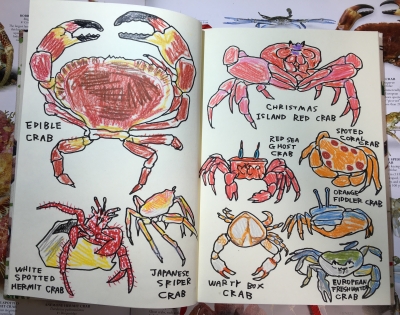 EDIBLE
CRAB
WHITE
SPOTTED
HERMIT CRAB
JAPANESE
SPIDER
CRAB
CHRISTMAS
ISLAND RED CRAB
RED SEA
GHOST
CRAB
SPOTTED
CORAL
CRAB
ORANGE
FIDDLER CRAB
WARTY BOX
CRAB
EUROPEAN
FRESHWATER
CRAB